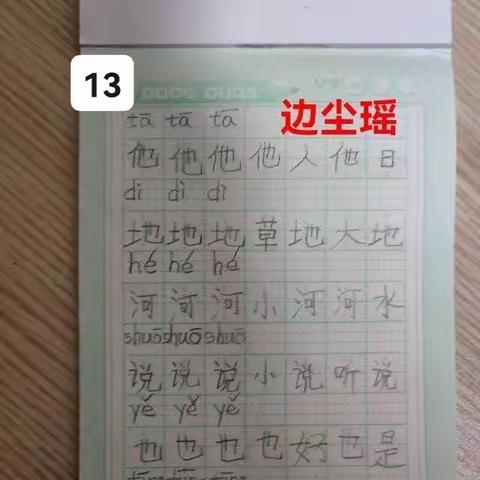 13
边尘瑶
tā tā tā
他 他 他 他 人 他 日
dì dì dì
地 地 地 草 地 大 地
hé hé hé
河 河 河 小 河 河 水
shuō shuō shuō
说 说 说 小 说 听 说
yě yě yě
也 也 也 也 好 也 是